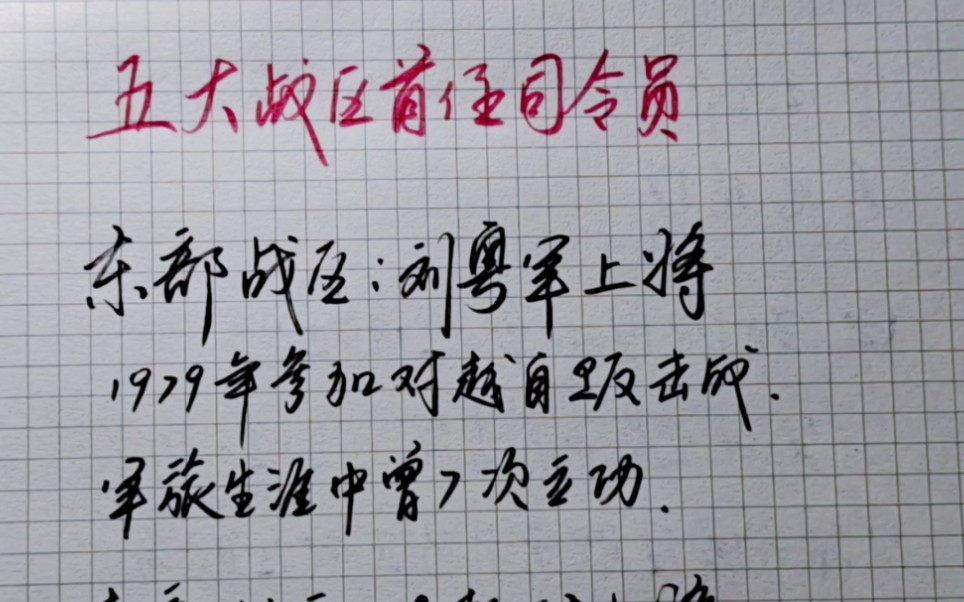 五大战区首任司令员
东部战区:刘粤军上将
1979年参加对越自卫反击战.
军旅生涯中曾7次立功.